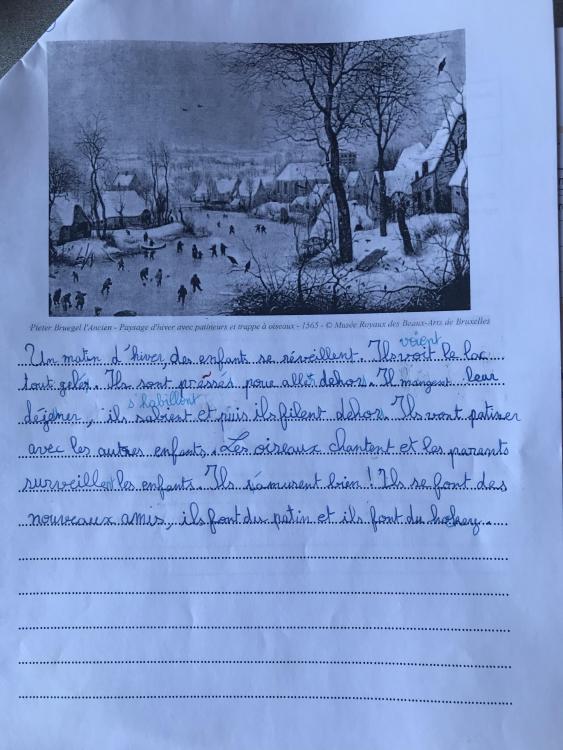 Pieter Bruegel l'Ancien - Paysage d'hiver avec patineurs et trappe à oiseaux - 1565 - © Musée Royaux des Beaux-Arts de Bruxelles
voient
Un matin d'hiver, des enfants se réveillent. Ils voit le lac
tout gelé. Ils sont pressés pour aller dehors. Il mangent leur
s'habillent
déjeuner, ils sabient et puis ils filent dehors. Ils vont patiner
avec les autres enfants. Les oiseaux chantent et les parents
surveillent les enfants. Ils s'amusent bien ! Ils se font des
nouveaux amis, ils font du patin et ils font du hokey.